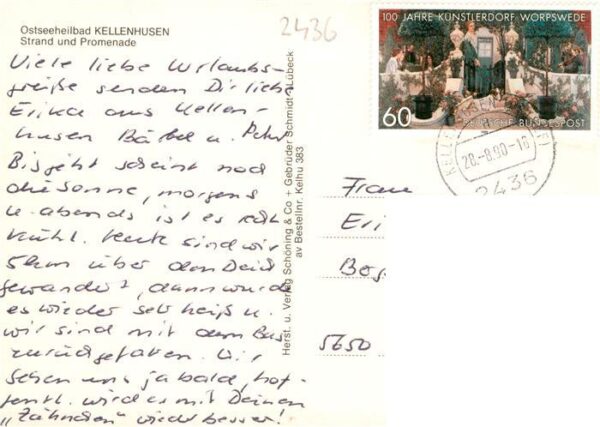 Ostseeheilbad KELLENHUSEN
Strand und Promenade
2436
Viele liebe Urlaubs-
grüße senden Dir liebe
Erika aus Kellen-
husen Bärbel u. Peter
Bisjetzt scheint noch
die Sonne, morgens
u. abends ist es recht
kühl. Heute sind wir
5km über den Deich
gewandert, dann wurde
es wieder sehr heiß u.
wir sind mit dem Bus
zurückgefahren. Wir
sehen uns ja bald, hof-
fentl. wird es mit Deinen
„Zähnchen" wieder besser!
Herst. u. Verlag Schöning & Co + Gebrüder Schmidt · Lübeck
av Bestellnr. Kelhu 383
100 JAHRE KÜNSTLERDORF WORPSWEDE
60
DEUTSCHE BUNDESPOST
28.-8.90-16
2436
Frau
Eri
Bog
5650